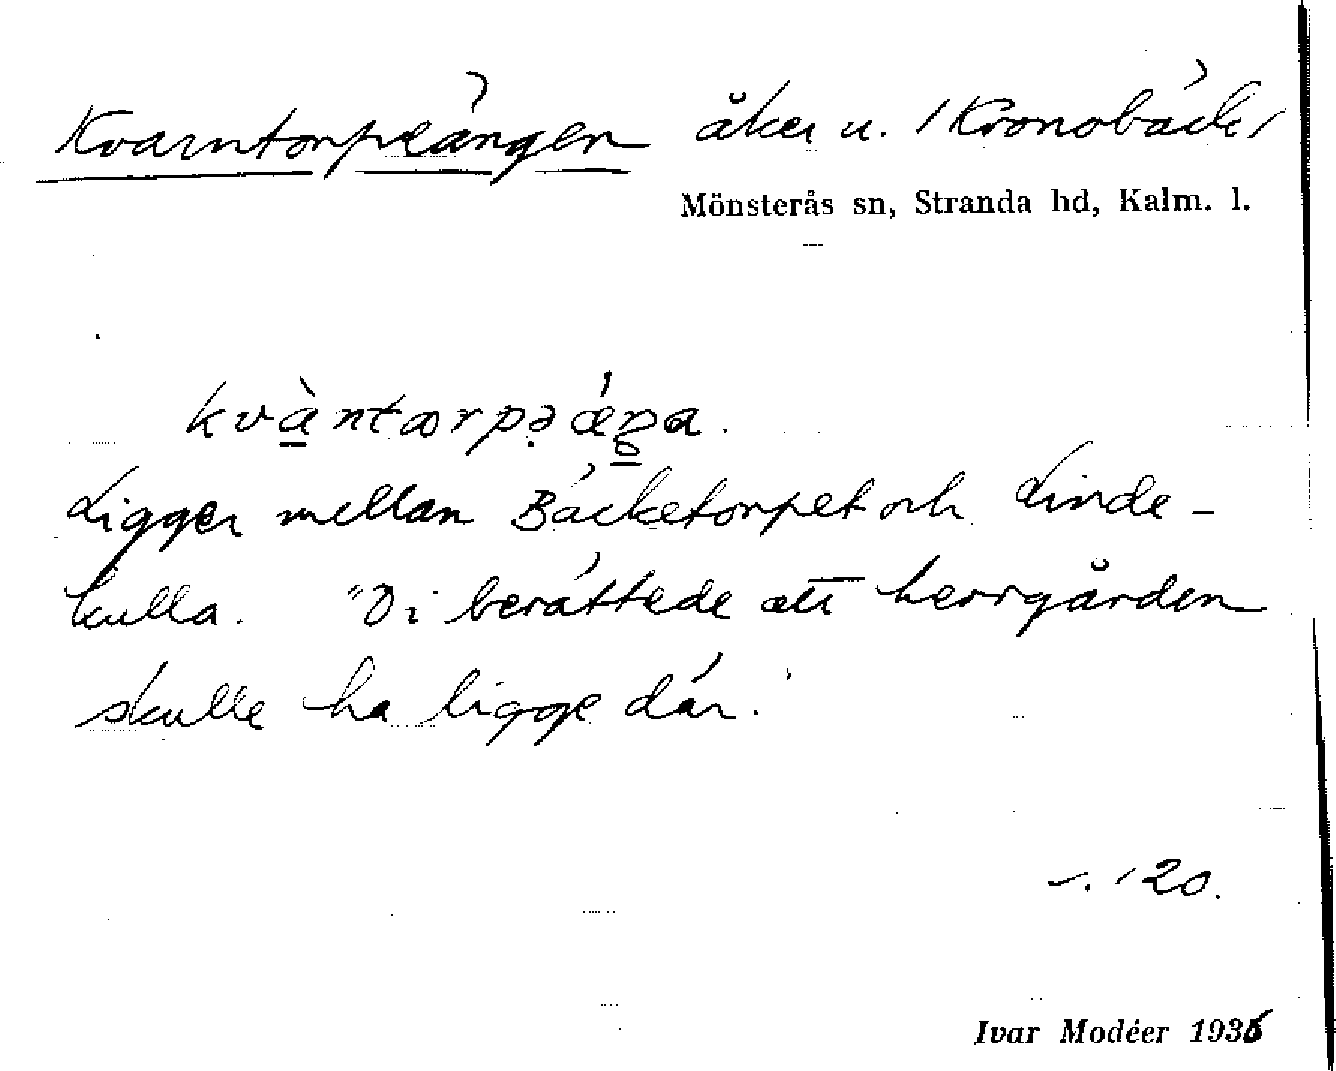 Kvarntorpeängen åker u. /Kronobäck/
Mönsterås sn, Stranda hd, Kalm. l.
kvàntorpəǽŋa.
Ligger mellan Bäcketorpet och Linde-
kulla. "Di berättede att herrgården
skulle ha ligge där."
120.
Ivar Modéer 1936